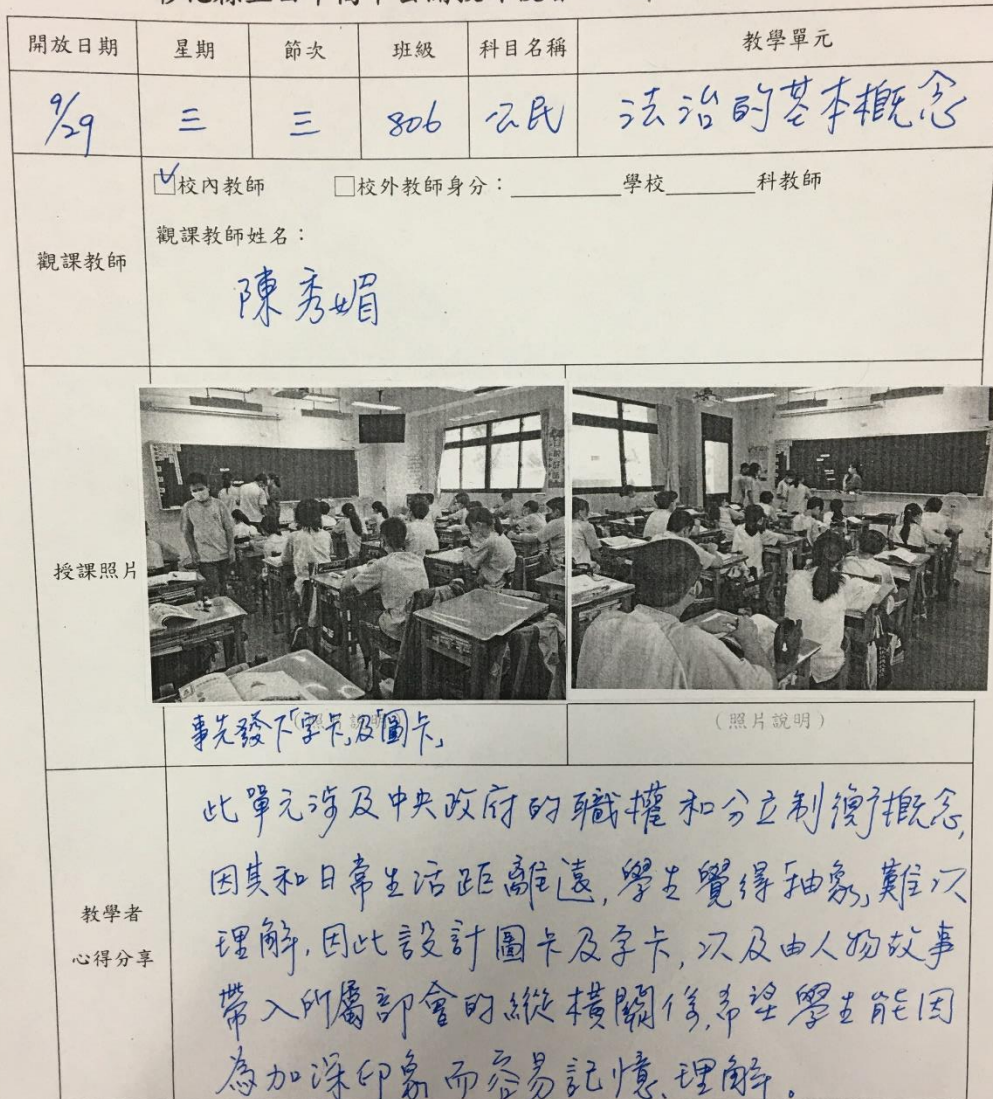 開放日期 星期 節次 班級 科目名稱 教學單元
9/29 三 三 806 公民 法治的基本概念
校內教師 □校外教師身分：________學校________科教師
觀課教師姓名：
觀課教師
陳秀媚
授課照片
事先發下「字卡」及「圖卡」
(照片說明)
教學者
心得分享
此單元涉及中央政府的職權和分立制衡概念,
因其和日常生活距離遠,學生覺得抽象,難以
理解,因此設計圖卡及字卡,以及由人物故事
帶入所屬部會的縱橫關係,希望學生能因
為加深印象而容易記憶、理解。